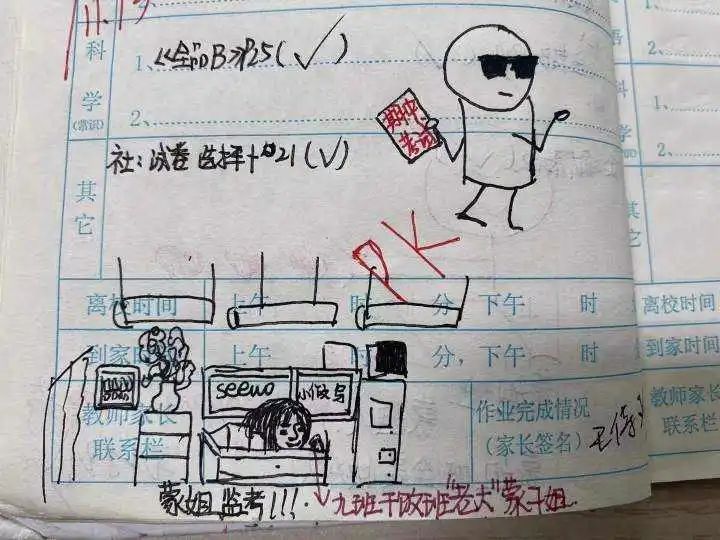 11.13
科学
(常识)
1、《全品B》P25(✓)
2、
期中考试
其它
社:试卷 选择+㉑(✓)
PK
离校时间 上午 时 分,下午 时
到家时 上午 分,下午 时
教师家长
联系栏
seewo
作业完成情况
(家长签名)
蒙姐 监考!!!
九班干敌班"老大"蒙子姐
离校时间
到家时间
教师家长
联系栏
1、
2、
其它